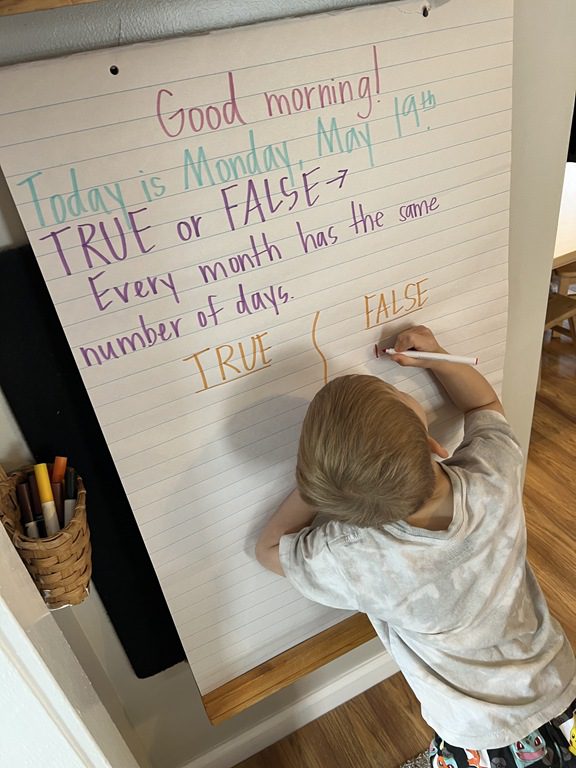 Good morning!
Today is Monday, May 19th.
TRUE or FALSE →
Every month has the same
number of days.
TRUE FALSE